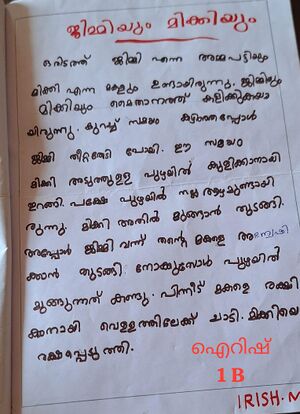 ജിമ്മിയും മിക്കിയും
ഒരിടത്ത് ജിമ്മി എന്ന അമ്മപട്ടിയും
മിക്കി എന്ന മകളും ഉണ്ടായിരുന്നു. ജിമ്മിയും
മിക്കിയും മൈതാനത്ത് കളിക്കുകയാ
യിരുന്നു. കുറച്ച് സമയം കഴിഞ്ഞപ്പോൾ
ജിമ്മി തീറ്റതേടി പോയി. ഈ സമയം
മിക്കി അടുത്തുള്ള പുഴയിൽ കുളിക്കാനായി
ഇറങ്ങി. പക്ഷേ പുഴയിൽ നല്ല ആഴമുണ്ടായി
രുന്നു. മിക്കി അതിൽ മുങ്ങാൻ തുടങ്ങി.
അപ്പോൾ ജിമ്മി വന്ന് തന്റെ മകളെ അന്വേഷി
ക്കാൻ തുടങ്ങി. നോക്കുമ്പോൾ പുഴയിൽ
മുങ്ങുന്നത് കണ്ടു. പിന്നീട് മകളെ രക്ഷി
ക്കാനായി വെള്ളത്തിലേക്ക് ചാടി. മിക്കിയെ
രക്ഷപ്പെടുത്തി.
ഐറിഷ്
1 B
IRISH.M